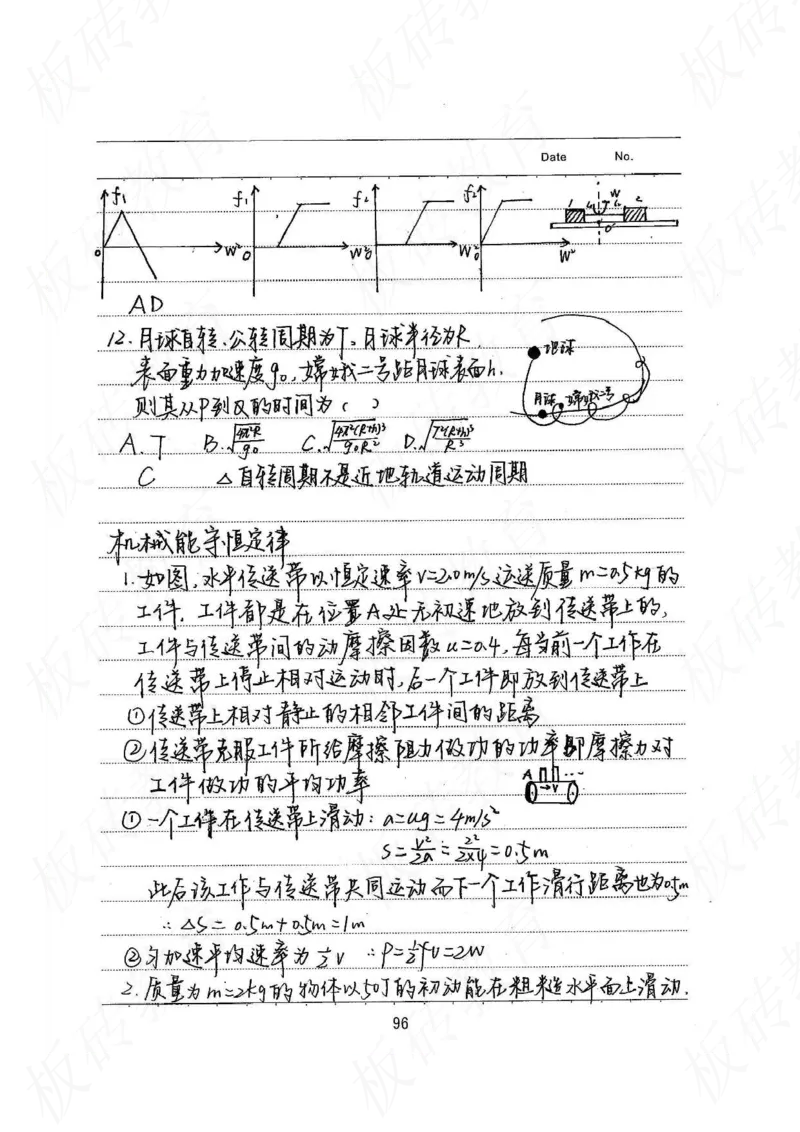 Date No.
f₁ f₁ f₂ f₂ 1 W 2
0 W² 0 W² 0 W² 0 W² O'
AD
12.月球自转、公转周期为T。月球半径为R, 地球
表面重力加速度g₀,嫦娥二号距月球表面h. 月球 嫦娥二号
则其从P到Q的时间为( )
A.T B.√(4π²R/g₀) C.√(4π²(R+h)³/g₀R²) D.√(T²(R+h)³/R³)
C △自转周期不是近地轨道运动周期
机械能守恒定律
1.如图,水平传送带以恒定速率v=2.0m/s运送质量m=0.5kg的
工件,工件都是在位置A处无初速地放到传送带上的,
工件与传送带间的动摩擦因数u=0.4,每当前一个工作在
传送带上停止相对运动时,后一个工件即放到传送带上
①传送带上相对静止的相邻工件间的距离
②传送带克服工件所给摩擦阻力做功的功率即摩擦力对
工件做功的平均功率 A ... v
①一个工件在传送带上滑动:a=ug=4m/s²
S=v²/2a=2²/2×4=0.5m
此后该工作与传送带共同运动而下一个工作滑行距离也为0.5m
∴△S=0.5m+0.5m=1m
②匀加速平均速率为½v ∴P=½fv=2W
2.质量为m=2kg的物体以50J的初动能在粗糙水平面上滑动.
96
板砖教育